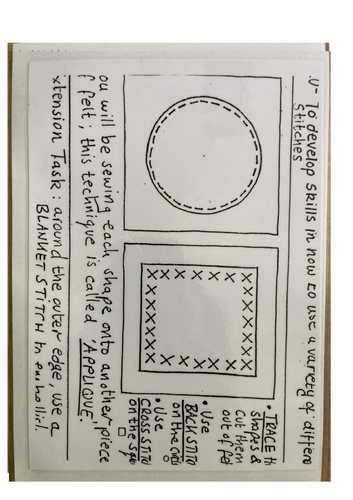 .U- To develop skills in how to use a variety of differe
stitches
• TRACE th
shapes &
cut them
out of fel
• Use
BACK STITC
on the circl
• Use
CROSS STITC
on the squ
ou will be sewing each shape onto another piece
f felt; this technique is called 'APPLIQUE'.
xtension Task: around the outer edge, use a
BLANKET STITCH to embellish.